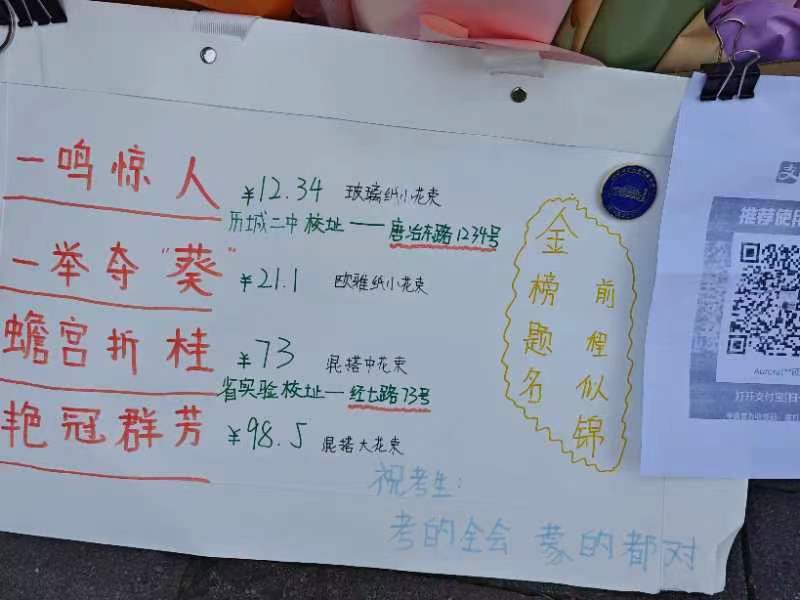 一鸣惊人 ￥12.34 玻璃纸小花束
历城二中校址——唐冶东路1234号
一举夺“葵” ￥21.1 欧雅纸小花束
蟾宫折桂 ￥73 混搭中花束
省实验校址——经七路73号
艳冠群芳 ￥98.5 混搭大花束
金榜题名
前程似锦
祝考生:
考的全会 蒙的都对
支
推荐使用
打开支付宝[扫一